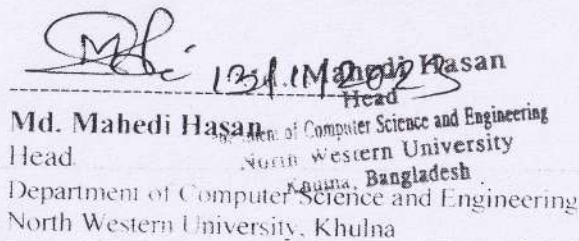 13/11/2023
Mahedi Hasan
Head
Md. Mahedi Hasan
of Computer Science and Engineering
Head
North Western University
Khulna, Bangladesh
Department of Computer Science and Engineering
North Western University, Khulna